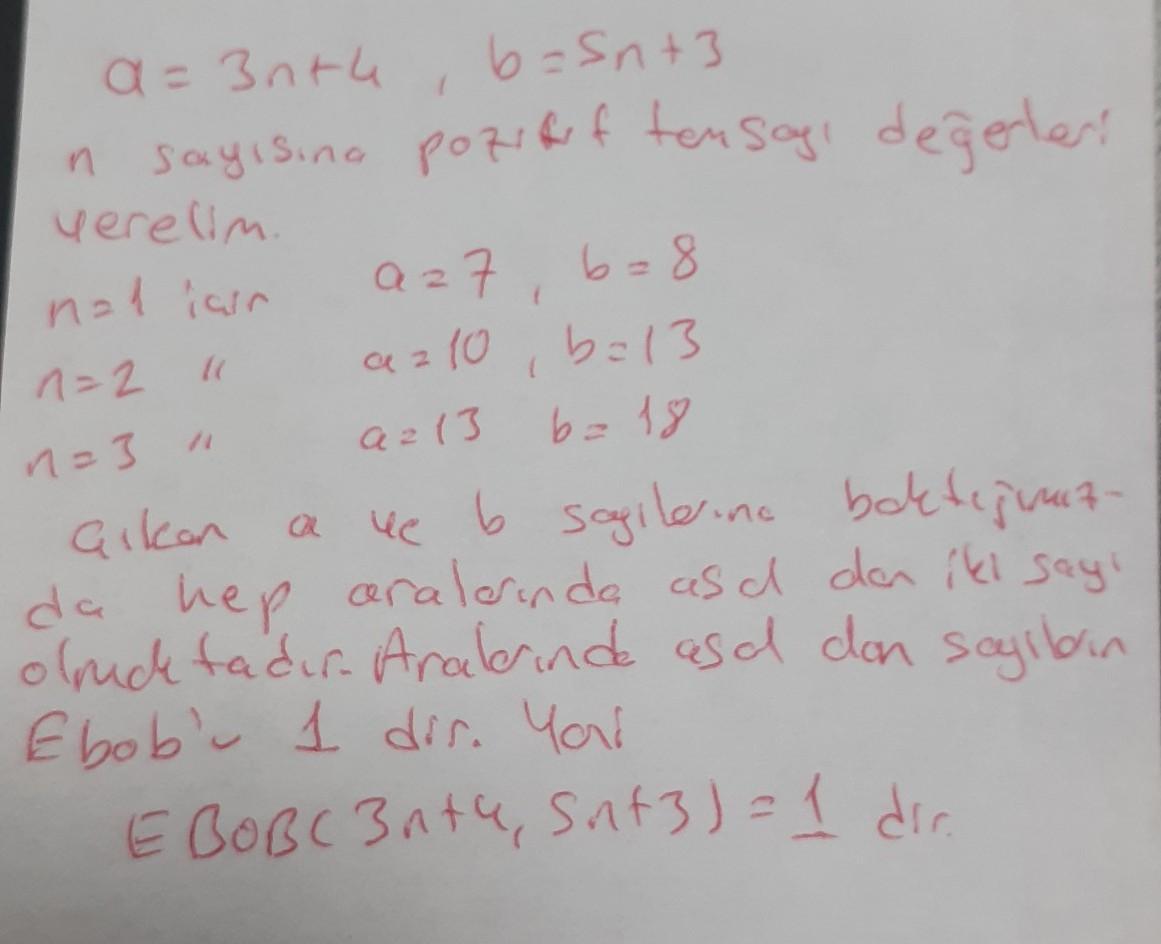 a = 3n+4 , b = 5n+3
n sayısına pozitif tamsayı değerleri
verelim.
n=1 için a=7 , b=8
n=2 " a=10 , b=13
n=3 " a=13 b=18
Çıkan a ve b sayılarına baktığımız-
da hep aralarında asal olan iki sayı
olmaktadır. Aralarında asal olan sayıların
Ebob'u 1 dir. Yani
EBOB(3n+4, 5n+3) = 1 dir.